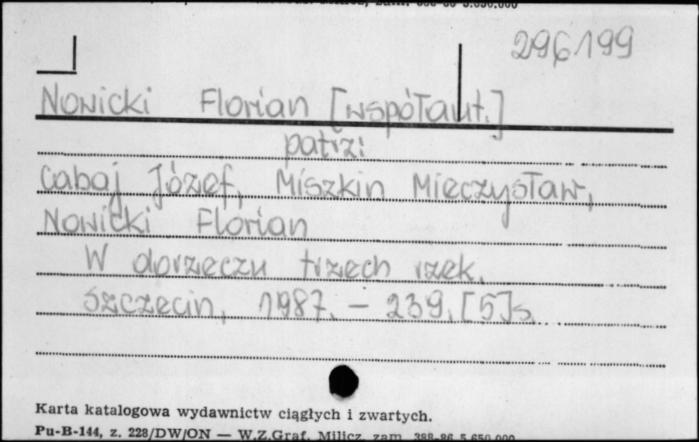 296199
Nowicki Florian [współaut.]
patrz:
Cabaj Józef, Miszkin Mieczysław,
Nowicki Florian
W dorzeczu trzech rzek.
Szczecin, 1987. - 239, [5] s.
Karta katalogowa wydawnictw ciągłych i zwartych.
Pu-B-144, z. 228/DW/ON — W.Z.Graf. Milicz, zam. 388-86 5.650.000